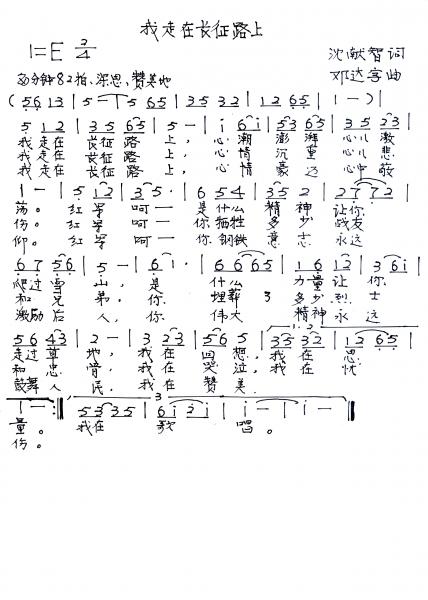 我走在长征路上
1=E 2/4 沈献智词
每分钟82拍、深思、赞美地 邓达亨曲
(5613 | 5—| 5 65 | 35 32 | 12 65 | 1—)
5 12 | 35 65 | 5— | i 6i | 53 65 | 5 23 |
我走在 长征路 上, 心潮 澎湃 心儿激
我走在 长征路 上, 心情 沉重 心儿悲
我走在 长征路 上, 心情 豪迈 心中敬
1— | 5 12 | 3— | 6 54 | 35 2 | 27 72 |
荡。 红军 呵一 是什么 精神 让你
伤。 红军 呵一 你牺牲 多少 战友
仰。 红军 呵一 你钢铁 意志 永远
67 56 | 5— | 6i· | 66 65 | 1 6 12 | 3 6i |
爬过雪 山, 是 什么 力量让 你
和兄 弟, 你 埋葬了 多少烈 士
激励后 人, 你 伟大 精神永 远
56 43 | 2— | 3 23 | 56 5 | 35 32 | 12 65 |
走过草 地, 我在 回想, 我在 思
和 我在 哭泣, 我在 忧
鼓舞人 民, 我在 赞美
1— :‖ 53 35 | 6i 2i | i— | i— ‖
量。 我在 歌 唱。
伤。